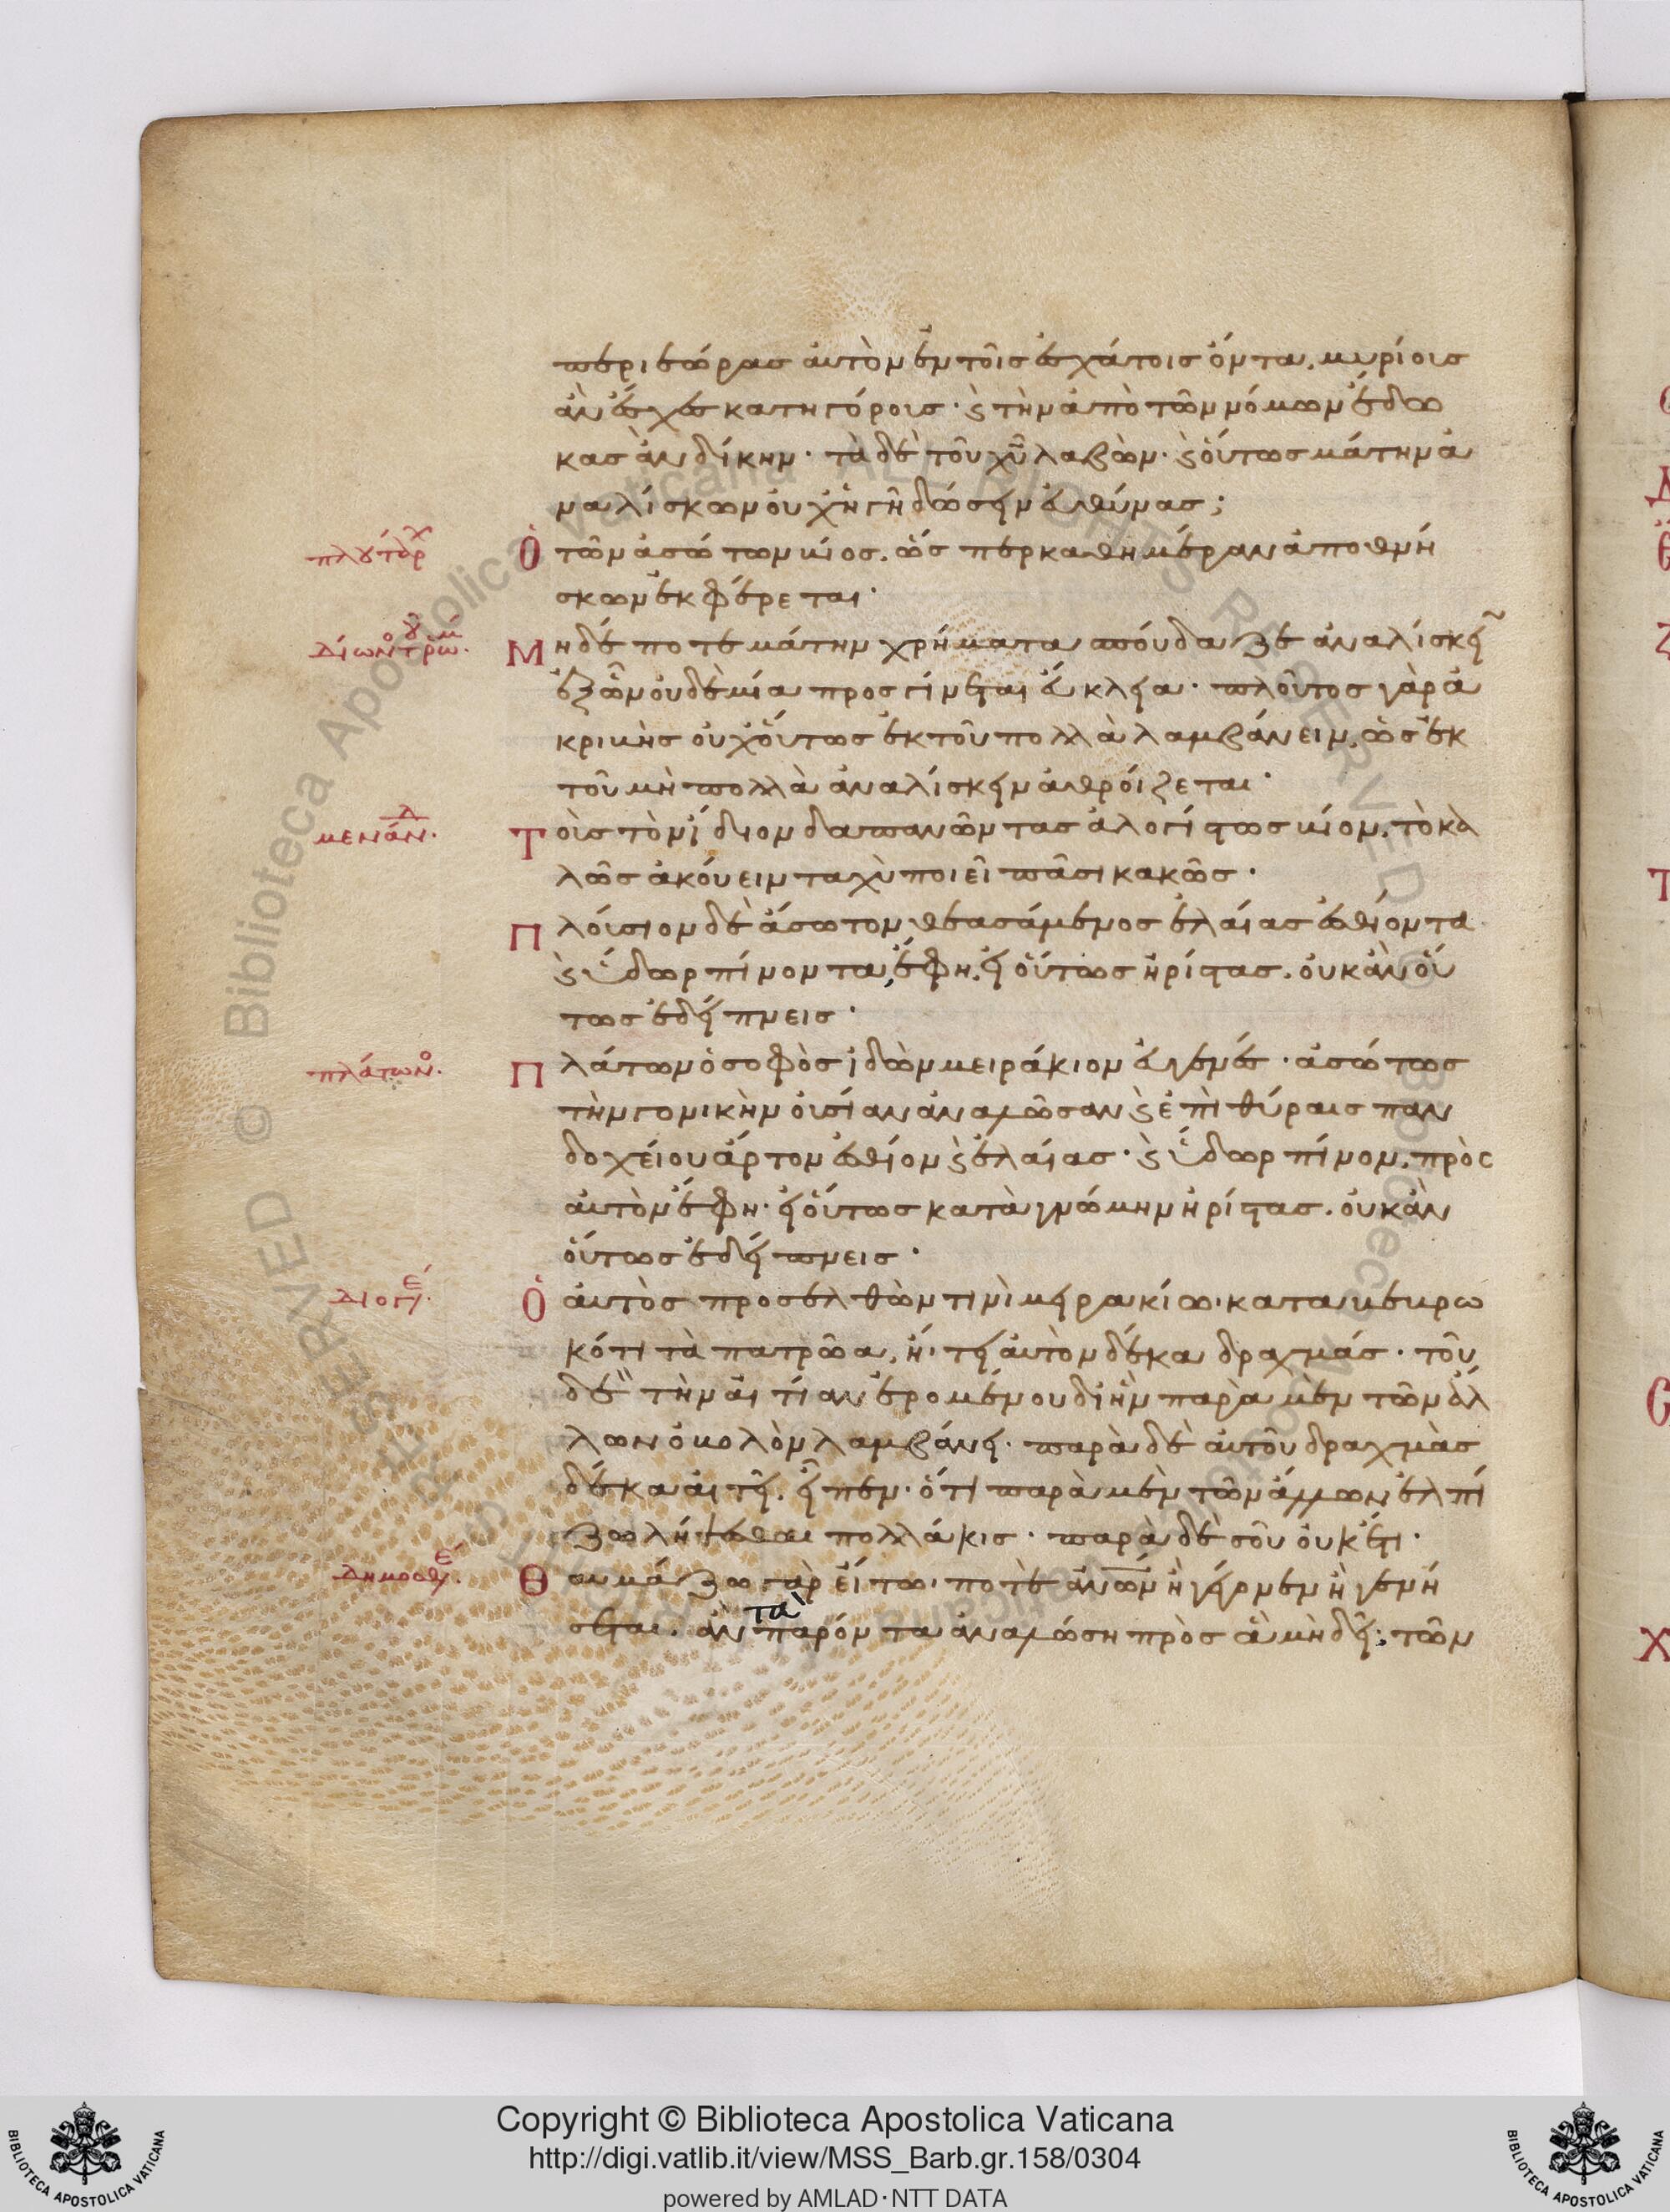 περιεώρας αὐτὸν ἐν τοῖς ἐσχάτοις ὄντα, μυρίους
ἂν ἔσχες κατηγόρους· καὶ τὴν ἀπὸ τῶν νόμων ἔδω
κας ἂν δίκην· τὰ δὲ τοῦ χῦ λαβὼν· καὶ οὕτως μάτην ἀ
ναλίσκων οὐχ ἡγῆ δώσειν εὐθύνας;
πλουτάρχ
Ὁ τῶν ἀσώτων βίος, ὥσπερ καθημέραν ἀποθνή
σκων ἐκφέρεται·
Δίων τ ῥωμ.
Μηδέποτε μάτην χρήματα σπούδαζε ἀναλίσκειν
ἐξ ὧν οὐδὲ μία προσγίνεται εὔκλεια· πλοῦτος γὰρ ἀ
κριβὴς οὐχ οὕτως ἐκ τοῦ πολλὰ λαμβάνειν, ὡς ἐκ
τοῦ μὴ πολλὰ ἀναλίσκειν ἀθροίζεται·
μενάνδ.
Τοῖς τὸν ἴδιον δαπανῶντας ἀλογίστως βίον, τὸ κα
λῶς ἀκούειν ταχὺ ποιεῖ πᾶσι κακῶς·
Πλούσιον δὲ ἄσωτον θεασάμενος ἐλαίας ἐσθίοντα
καὶ ὕδωρ πίνοντα, ἔφη, εἰ οὕτως ἠρίστας, οὐκ ἂν οὕ
τως ἐδείπνεις·
πλάτων.
Πλάτων ὁ σοφὸς ἰδὼν μειράκιον εὐγενὲ· ἀσώτως
τὴν γονικὴν οὐσίαν ἀναλῶσαν καὶ ἐπὶ θύραις παν
δοχείου ἄρτον ἐσθίον καὶ ἐλαίας· καὶ ὕδωρ πίνον, πρὸς
αὐτὸν ἔφη· εἰ οὕτως κατὰ γνώμην ἠρίστας, οὐκ ἂν
οὕτως ἐδείπνεις·
Διογέ.
Ὁ αὐτὸς προσελθὼν τινὶ μειρακίω· καταβεβρω
κότι τὰ πατρῶα, ἤ τει αὐτὸν δέκα δραχμάς· τοῦ
δὲ τὴν αἰτίαν ἐρομένου δι ἣν παρὰ μὲν τῶν ἄλ
λων ὀβολὸν λαμβάνει· παρὰ δὲ αὐτοῦ δραχμὰς
δέκα αἰτεῖ, εἶπεν· ὅτι παρὰ μὲν τῶν ἄλλων ἐλπί
ζω λήψεσθαι πολλάκις· παρὰ δὲ σοῦ οὐκέτι·
Δημοσθέ.
Θαυμάζω γὰρ εἴ τω· ποτὲ ἀνων ἢ γέγονεν ἢ γενή
σεται. ἂν τὰ παρόντα ἀναλώση πρὸς ἃ μὴ δεῖ; τῶν
Copyright © Biblioteca Apostolica Vaticana
http://digi.vatlib.it/view/MSS_Barb.gr.158/0304
powered by AMLAD·NTT DATA